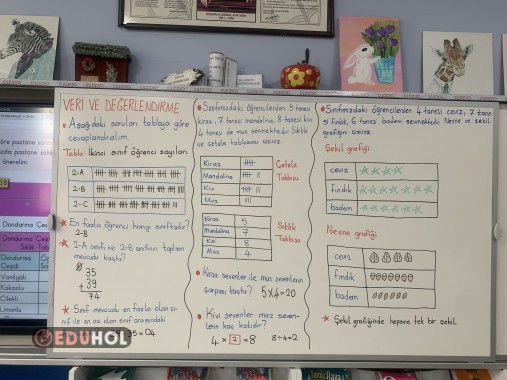 VERİ VE DEĞERLENDİRME
Aşağıdaki soruları tabloya göre
cevaplandıralım.
Tablo: İkinci sınıf öğrenci sayıları
2-A
2-B
2-C
En fazla öğrenci hangi sınıftadır?
2-B
2-A sınıfı ve 2-B sınıfının toplam
mevcudu kaçtır?
35
+ 39
74
Sınıf mevcudu en fazla olan sı-
nıf ile en az olan sınıf arasındaki
35 = 04
Sınıfımızdaki öğrencilerden 5 tanesi
kiraz, 7 tanesi mandalina, 8 tanesi kivi
4 tanesi de muz sevmektedir. Sıklık
ve çetele tablosunu çiziniz
Kiraz
Mandalina
Kivi
Muz
Çetele
Tablosu
Kiraz 5
Mandalina 7
Kivi 8
Muz 4
Sıklık
Tablosu
Kiraz sevenler ile muz sevenlerin
çarpımı kaçtır? 5x4=20
Kivi sevenler muz seven-
lerin kaç katıdır?
4 x 2 = 8 8÷4=2
Sınıfımızdaki öğrencilerden 4 tanesi ceviz, 7 tane
si fındık, 6 tanesi badem sevmektedir. Nesne ve şekil
grafiğini çiziniz
Şekil grafiği
ceviz
fındık
badem
Nesne grafiği
ceviz
fındık
badem
Şekil grafiğinde hepsine tek bir şekil
EDUHOL
Dondurma
Çeşidi
Vanilyalı
Kakaolu
Çilekli
Limonlu